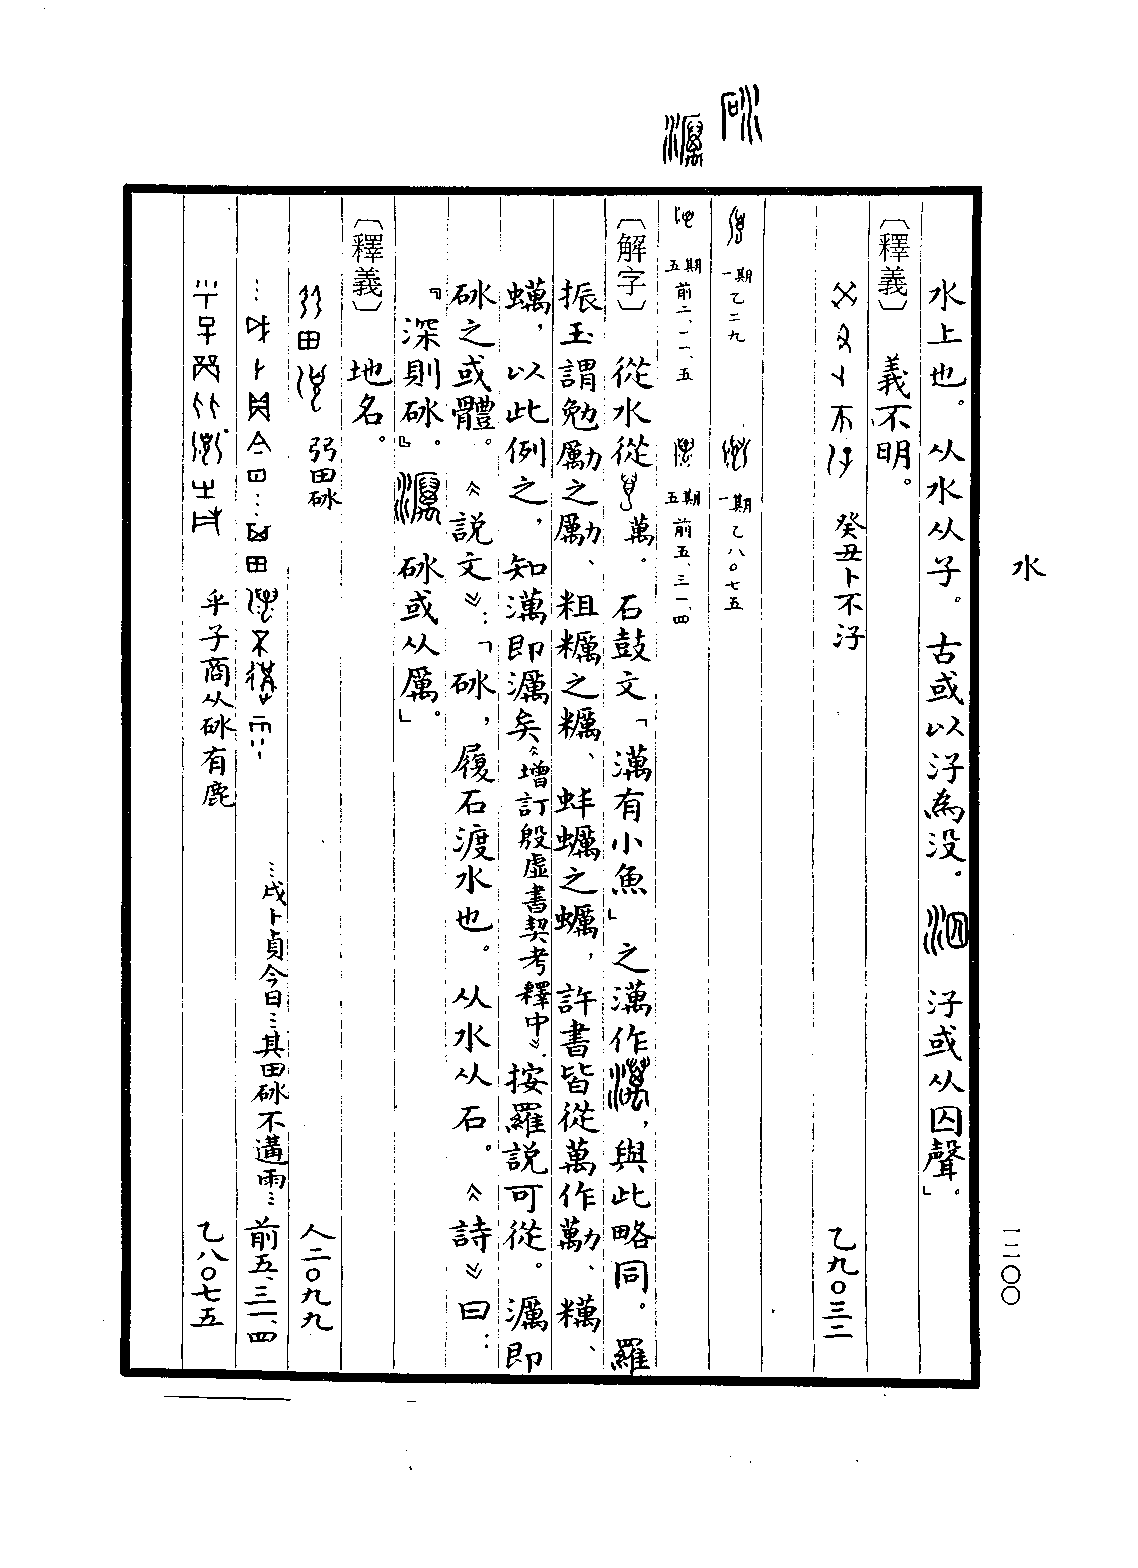 水
一二〇〇
水上也。从水从子。古或以汓為没。 汓或从囚聲。」
〔釋義〕 義不明。
癸丑卜不汓 乙九〇三二
一期 乙二九 一期 乙八〇七五
五期 前二、一一、五 五期 前五、三一、四
〔解字〕 從水從 萬。石鼓文「澫有小魚」之澫作 ，與此略同。羅
振玉謂勉勵之勵、粗糲之糲、蚌蠣之蠣，許書皆從萬作勱、𥻄、
蠇，以此例之，知澫即濿矣《增訂殷虛書契考釋中》。按羅說可從。濿即
砅之或體。《說文》：「砅，履石渡水也。从水从石。《詩》曰：
『深則砅。』 砅或从厲。」
〔釋義〕 地名。
弜田砅 人二〇九九
…戌卜貞今日…其田砅不遘雨… 前五、三一、四
乎子商从砅有鹿 乙八〇七五